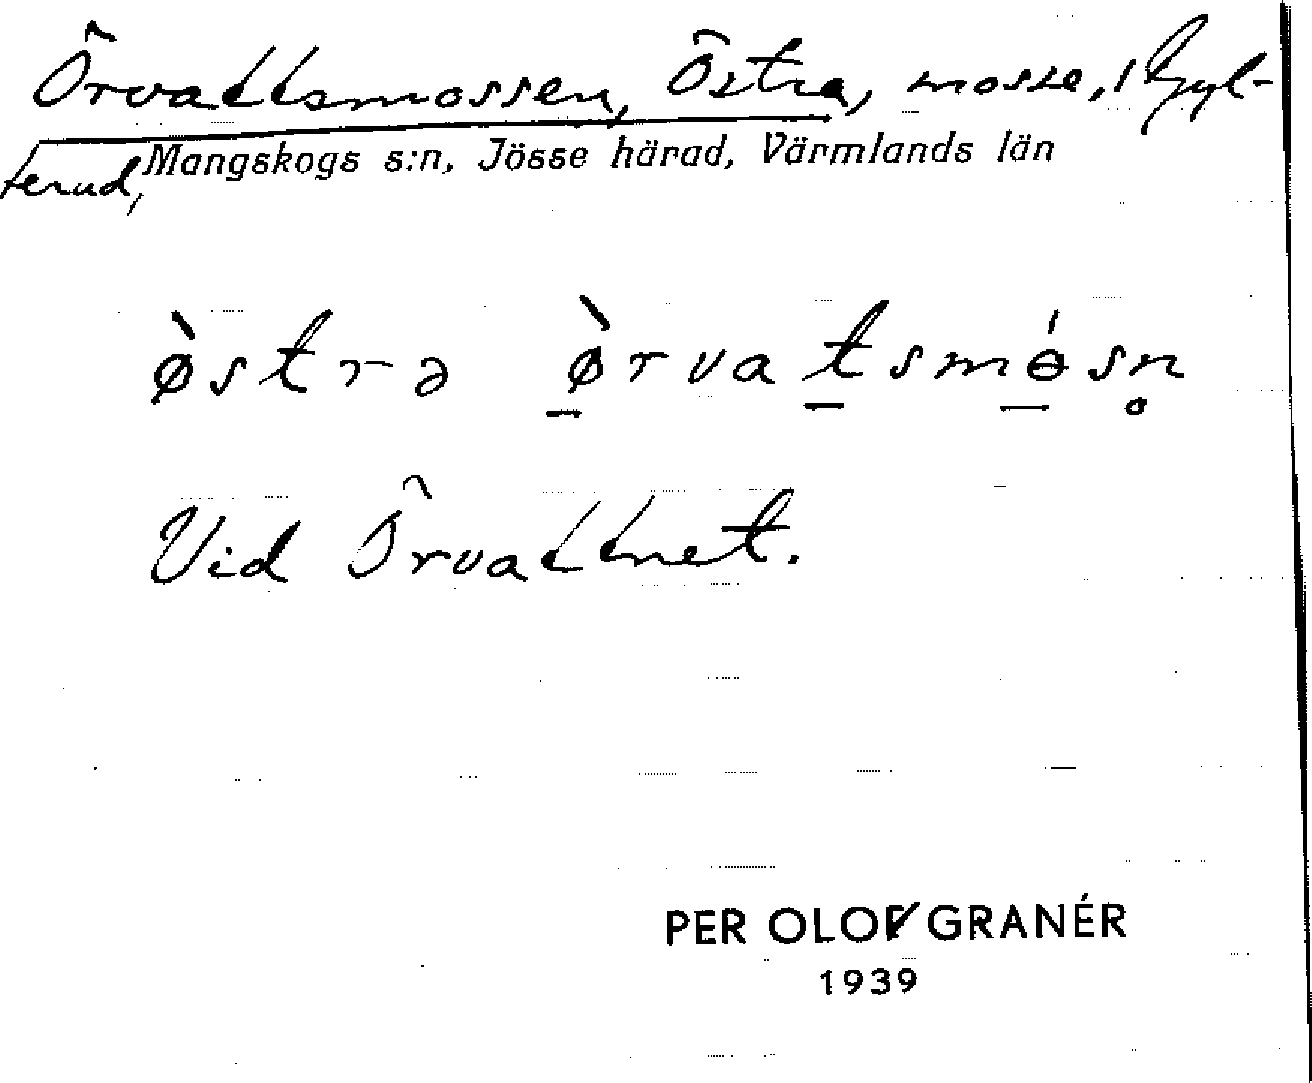 Örvattsmossen, Östra, mosse, i Gyl-
terud, Mangskogs s:n, Jösse härad, Värmlands län
ø̀strə ø̱̀rvaṯsmɵ̱́sn̥
Vid Örvattnet.
PER OLOV GRANÉR
1939